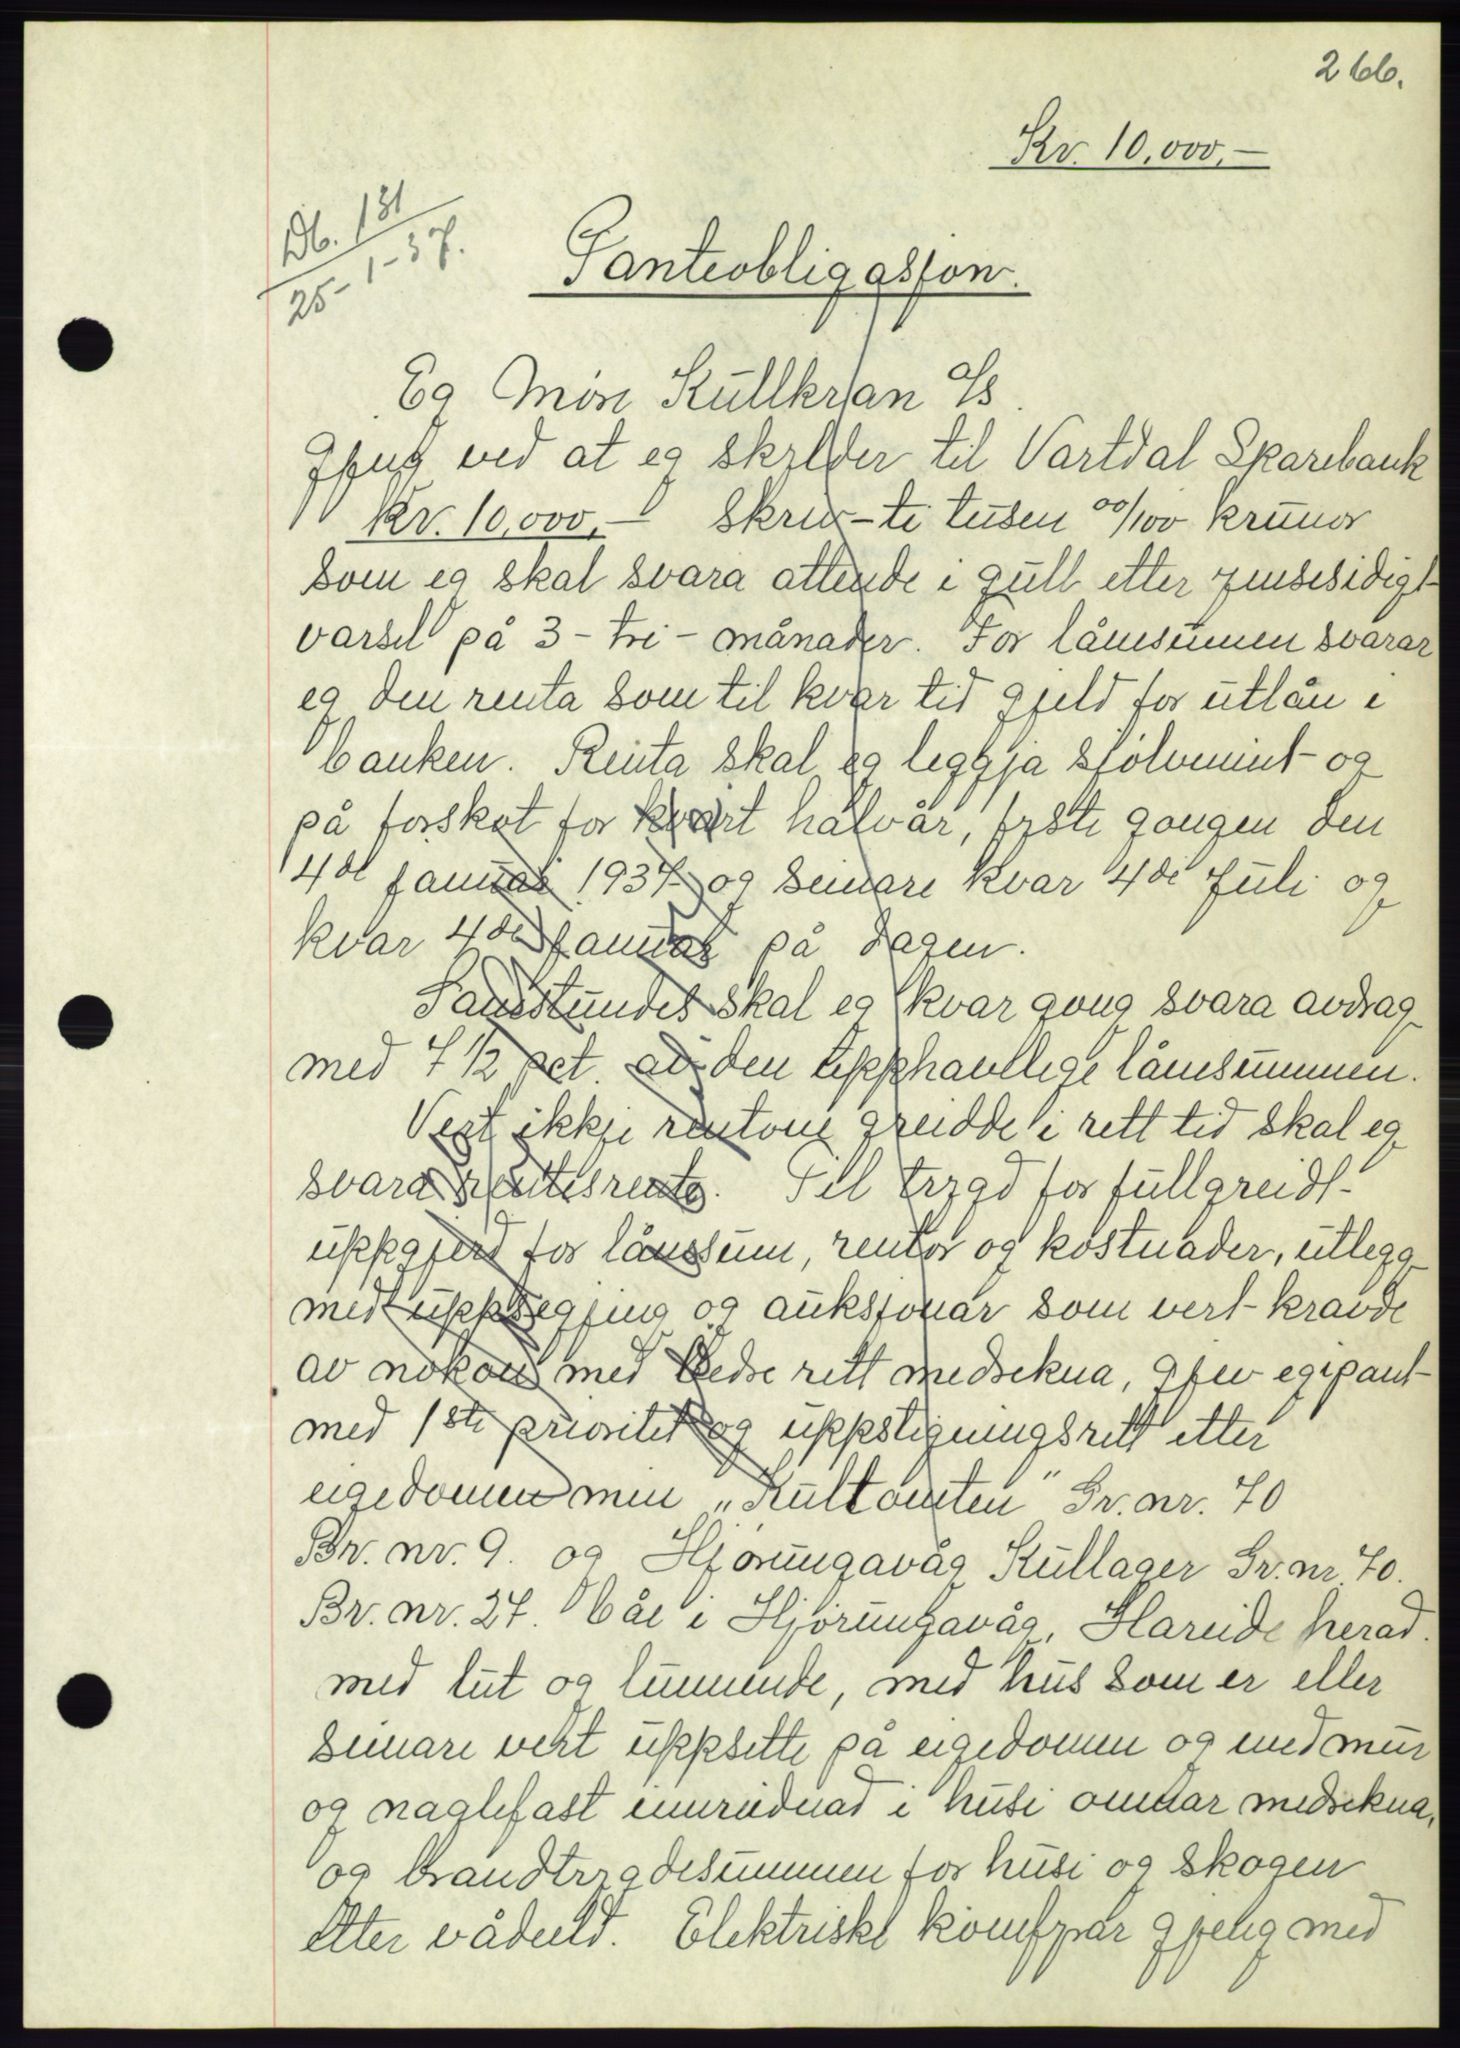 266.
Kr. 10.000,-
Db. 131
25-1-37.
Panteobligasjon.
Eg Møre Kullkran A/S
gjeng ved at eg skylder til Vartdal Sparebank
Kr. 10,000,- skriv-ti tusen 00/100 krunor
som eg skal svara attende i gull etter gjensesidigt
varsel på 3-tri-månader. For lånesummen svarar
eg den renta som til kvar tid gjeld for utlån i
banken. Renta skal eg leggja sjølvmint og
på forskot for kvart halvår, fyste gongen den
4de januar 1937 og seinare kvar 4de juli og
kvar 4de januar på dagen.
Samstundes skal eg kvar gong svara avdrag
med 7 1/2 pct. av den upphavlege lånesummen.
Vert ikkje rentone greidde i rett tid skal eg
svara rentesrente. Til trygd for fullgreidt
uppgjerd for lånesum, rentor og kostnader, utlegg
med uppsegjing og auksjonar som vert kravde
av nokon med bedre rett medrekna, gjev eg pant
med 1ste prioritet og uppstigningsrett etter
eigedomen min "Kultomten" Gr. nr. 70
Br. nr. 9. og Hjørungavåg Kullager Gr. nr. 70.
Br. nr. 27. båe i Hjørungavåg, Hareide herad.
med lut og lunnende, med hus som er eller
seinare vert uppsette på eigedomen og med mur
og naglefast innreidnad i husi omnar medrekna,
og brandtrygdesummen for husi og skogen
etter vådeeld. Elektriske komfyrar gjeng med